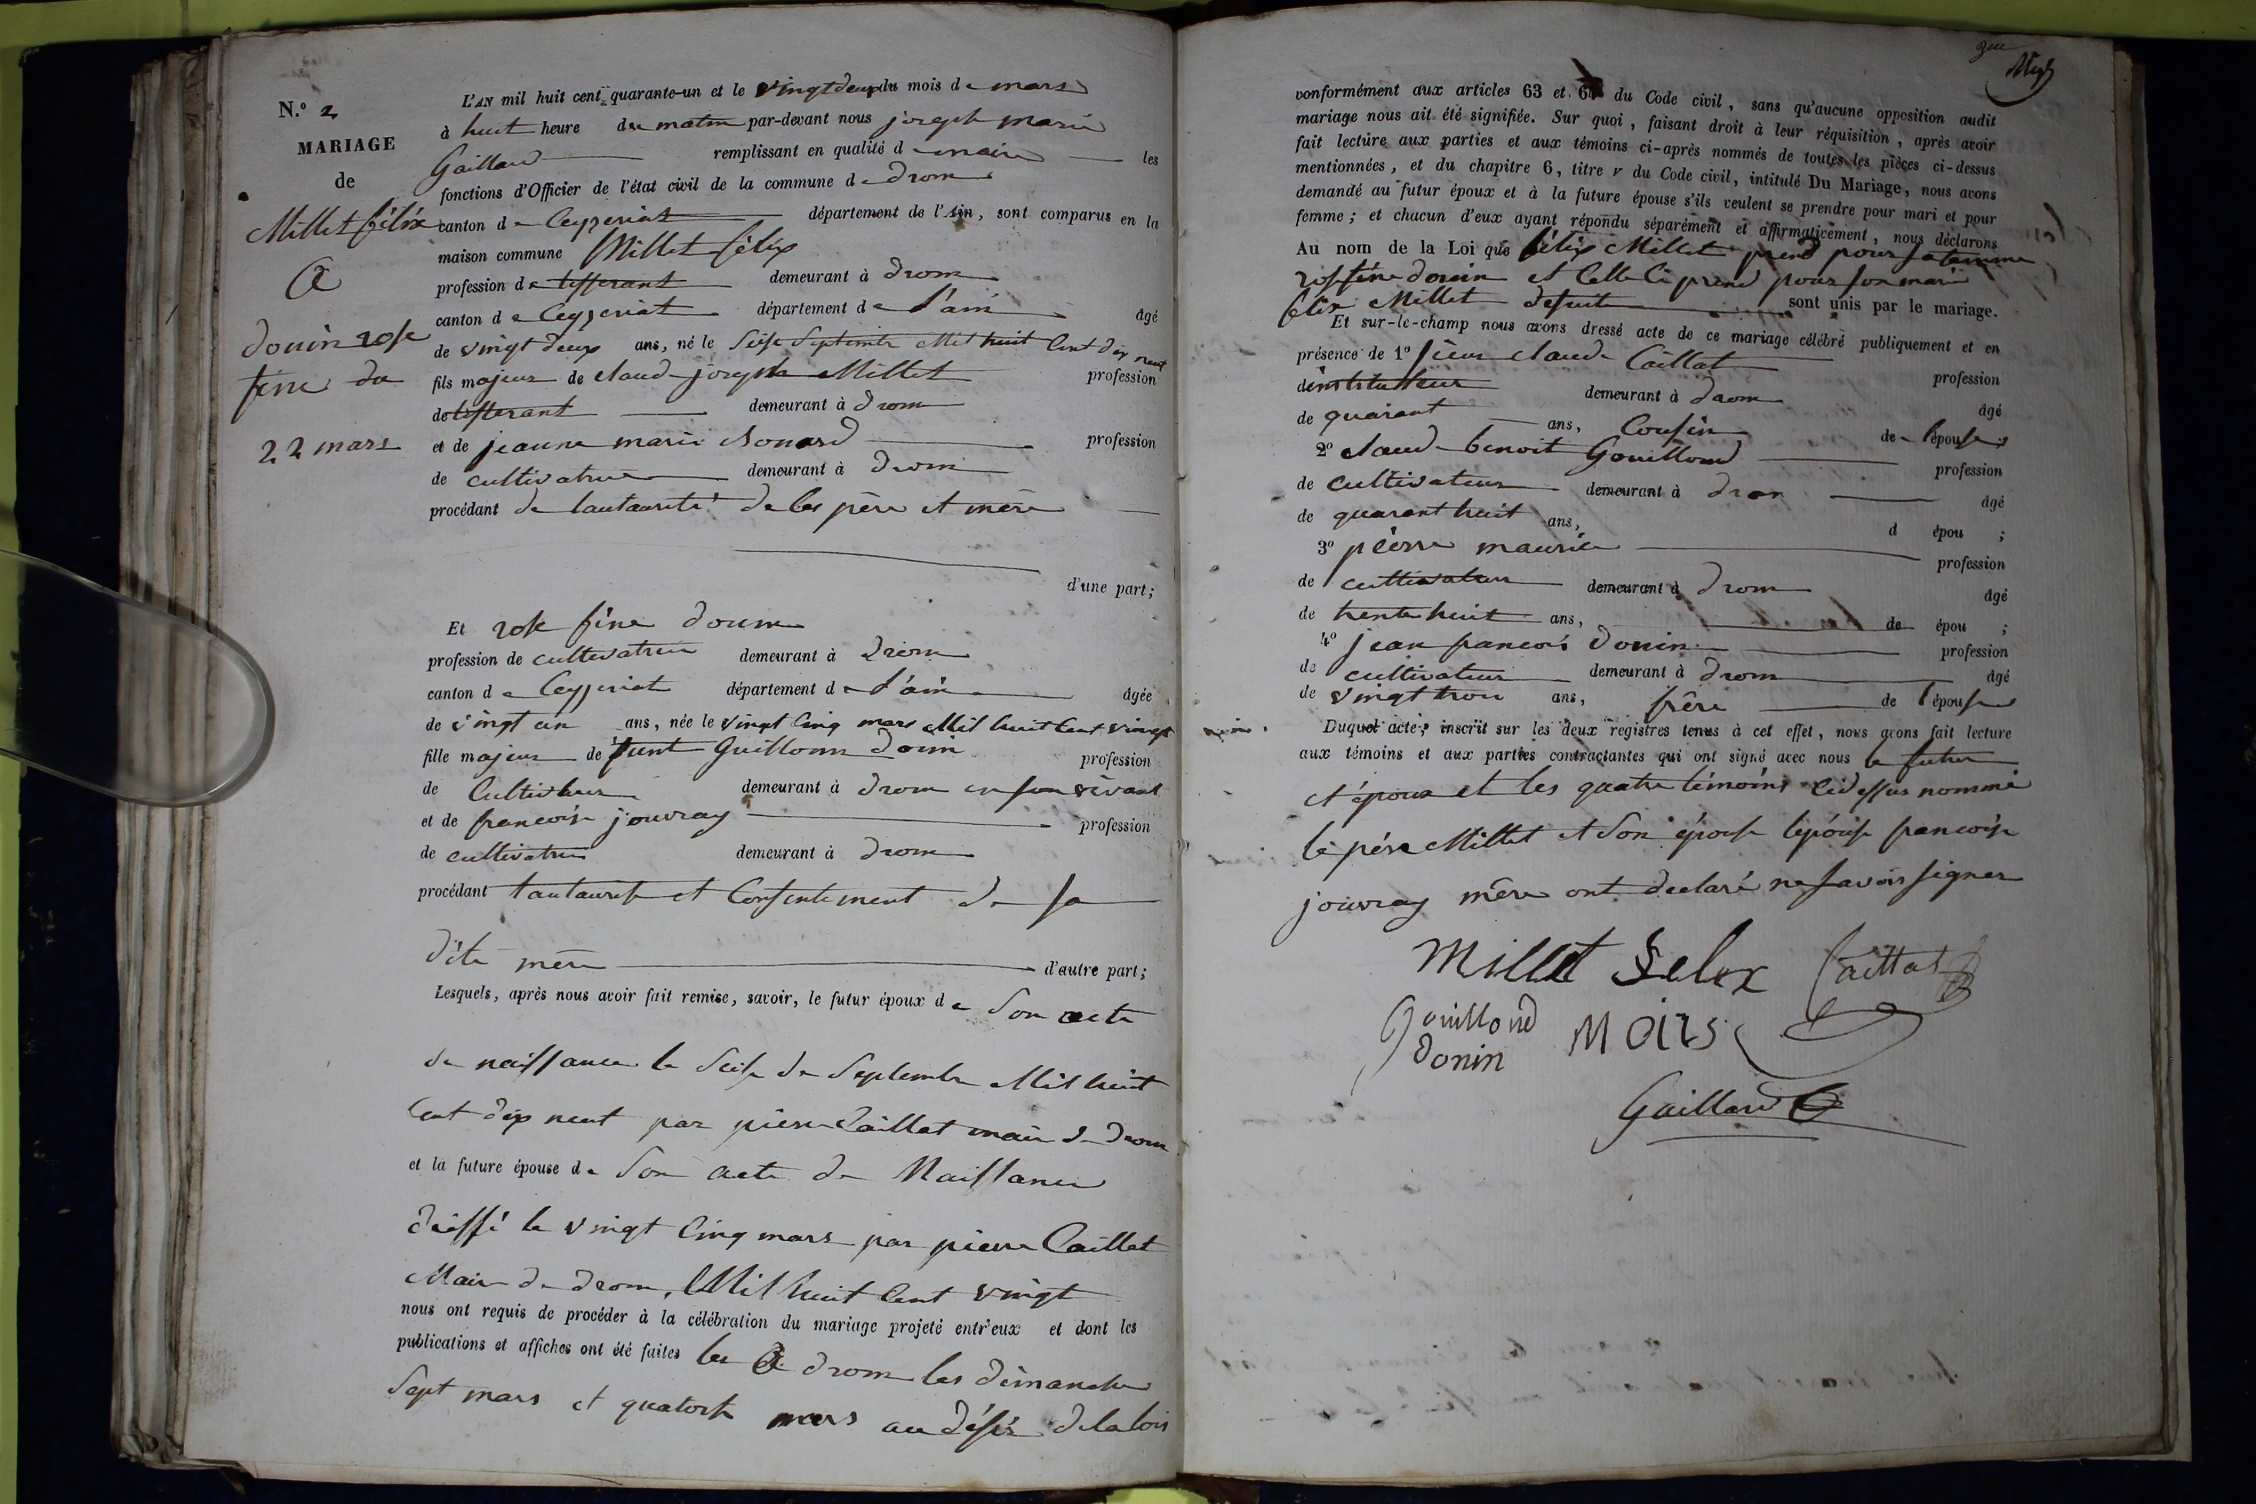 N.º 2
MARIAGE
de
Millet félix
&
donin rose
fine du
22 mars
L'AN mil huit cent quarante-un et le vingt deux du mois de mars
à huit heure du matin par-devant nous joseph marie
Gaillard remplissant en qualité de maire les
fonctions d'Officier de l'état civil de la commune de drom
canton de Ceyzeriat département de l'Ain, sont comparus en la
maison commune Millet félix
profession de tisserant demeurant à drom
canton de Ceyzeriat département de l'ain âgé
de vingt deux ans, né le seise septembre Mil huit Cent dix neuf
fils majeur de claude joseph Millet profession
de tisserant demeurant à drom
et de jeanne marie profession
de cultivatrice demeurant à drom
procédant de lautaurité de les père et mère
d'une part;
Et rose fine donin
profession de cultivatrice demeurant à drom
canton de Ceyzeriat département de l'ain âgée
de vingt un ans, née le vingt Cinq mars Mil huit Cent vingt
fille majeur de Guillome donin profession
de Cultivateur demeurant à drom en son vivant
et de francoise jouvray profession
de cultivatrice demeurant à drom
procédant lautaurité et Consentement de sa
dite mère d'autre part;
Lesquels, après nous avoir fait remise, savoir, le futur époux de son acte
de naissance le seise de septembre Mil huit
Cent dix neuf par pierre Caillat maire de drom
et la future épouse de son acte de Naissance
dressé le vingt Cinq mars par pierre Caillat
Maire de drom, Mil huit Cent vingt
nous ont requis de procéder à la célébration du mariage projeté entr'eux et dont les
publications et affiches ont été faites les à drom les dimanche
sept mars et quatorse mars au désir de la lois
conformément aux articles 63 et 64 du Code civil, sans qu'aucune opposition audit
mariage nous ait été signifiée. Sur quoi, faisant droit à leur réquisition, après avoir
fait lecture aux parties et aux témoins ci-après nommés de toutes les pièces ci-dessus
mentionnées, et du chapitre 6, titre v du Code civil, intitulé Du Mariage, nous avons
demandé au futur époux et à la future épouse s'ils veulent se prendre pour mari et pour
femme; et chacun d'eux ayant répondu séparément et affirmativement, nous déclarons
Au nom de la Loi que félix Millet prend pour sa femme
rose fine donin et Celle Ci prend pour son mari
félix Millet de suite sont unis par le mariage.
Et sur-le-champ nous avons dressé acte de ce mariage célébré publiquement et en
présence de 1º sieur claude Caillat profession
d'instituteur demeurant à drom âgé
de quarant ans, Cousin de l'épouse;
2º claude benoit Gouillond profession
de cultivateur demeurant à drom âgé
de quarant huit ans, d épou ;
3º pierre maurice profession
de cultivateur demeurant à drom âgé
de trente huit ans, de épou ;
4º jean francois donin profession
de cultivateur demeurant à drom âgé
de vingt trois ans, frère de l'épouse
Duquel acte, inscrit sur les deux registres tenus à cet effet, nous avons fait lecture
aux témoins et aux parties contractantes qui ont signé avec nous le futur
et époux et les quatre témoins cidessus nommé
le père Millet et son épouse lépouse francoise
jouvray mère ont declaré ne savoir signer
Millet Felix Caillat
Gouillond
donin
Gaillard